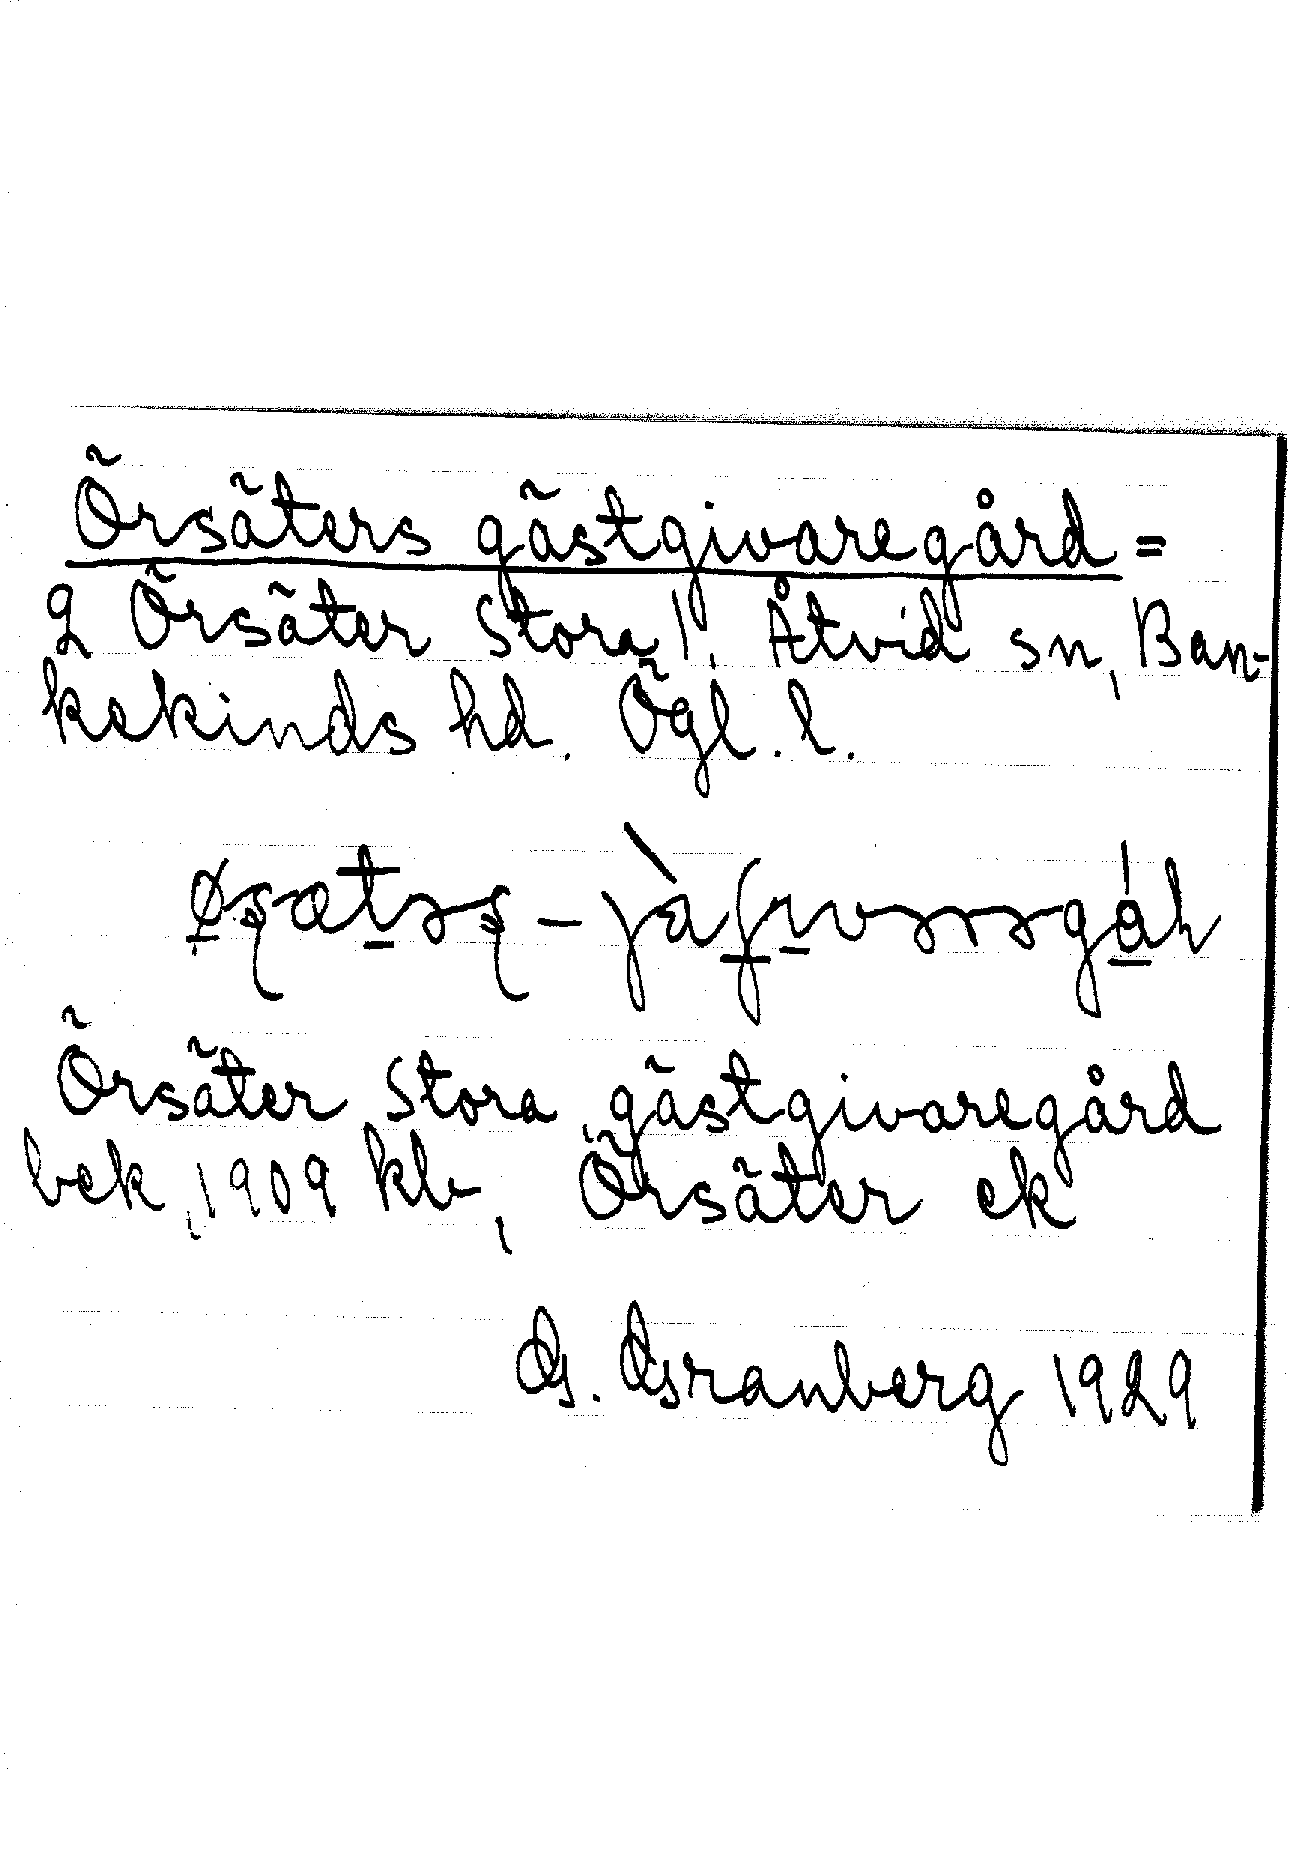 Örsäters gästgivaregård =
2 Örsäter Stora! Åtvid sn, Ban-
kekinds hd. Ögl. l.
Örsäter Stora, gästgivaregård
bek. 1909 kb, Örsäter ek
G. Granberg 1929